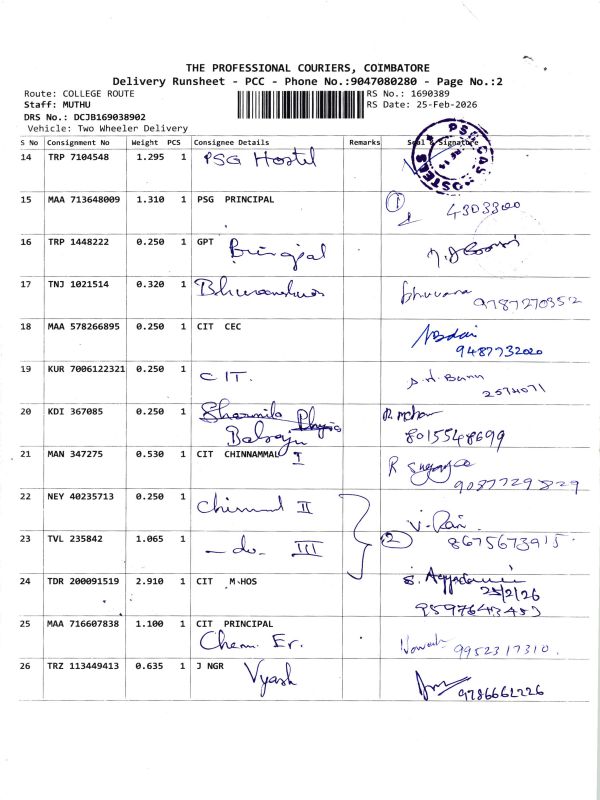 THE PROFESSIONAL COURIERS, COIMBATORE
Delivery Runsheet - PCC - Phone No.:9047080280 - Page No.:2
Route: COLLEGE ROUTE
RS No.: 1690389
Staff: MUTHU
RS Date: 25-Feb-2026
DRS No.: DCJB169038902
Vehicle: Two Wheeler Delivery
S No Consignment No Weight PCS Consignee Details Remarks Seal & Signature
14 TRP 7104548 1.295 1 PSG Hostel
15 MAA 713648009 1.310 1 PSG PRINCIPAL 1 4303300
16 TRP 1448222 0.250 1 GPT
17 TNJ 1021514 0.320 1 Bhuvaneshwari Bhuvana 9787270352
18 MAA 578266895 0.250 1 CIT CEC 9487732020
19 KUR 7006122321 0.250 1 CIT. 2574071
20 KDI 367085 0.250 1 Sharmila Physio R. Mohan
Balraju 8015548699
21 MAN 347275 0.530 1 CIT CHINNAMMAL I R
9087729829
22 NEY 40235713 0.250 1 II
23 TVL 235842 1.065 1 - do - III 2 8675673915
24 TDR 200091519 2.910 1 CIT M-HOS
25/2/26
9597643453
25 MAA 716607838 1.100 1 CIT PRINCIPAL
Chem. Er. 9952317310.
26 TRZ 113449413 0.635 1 J NGR Vyash 9786661226